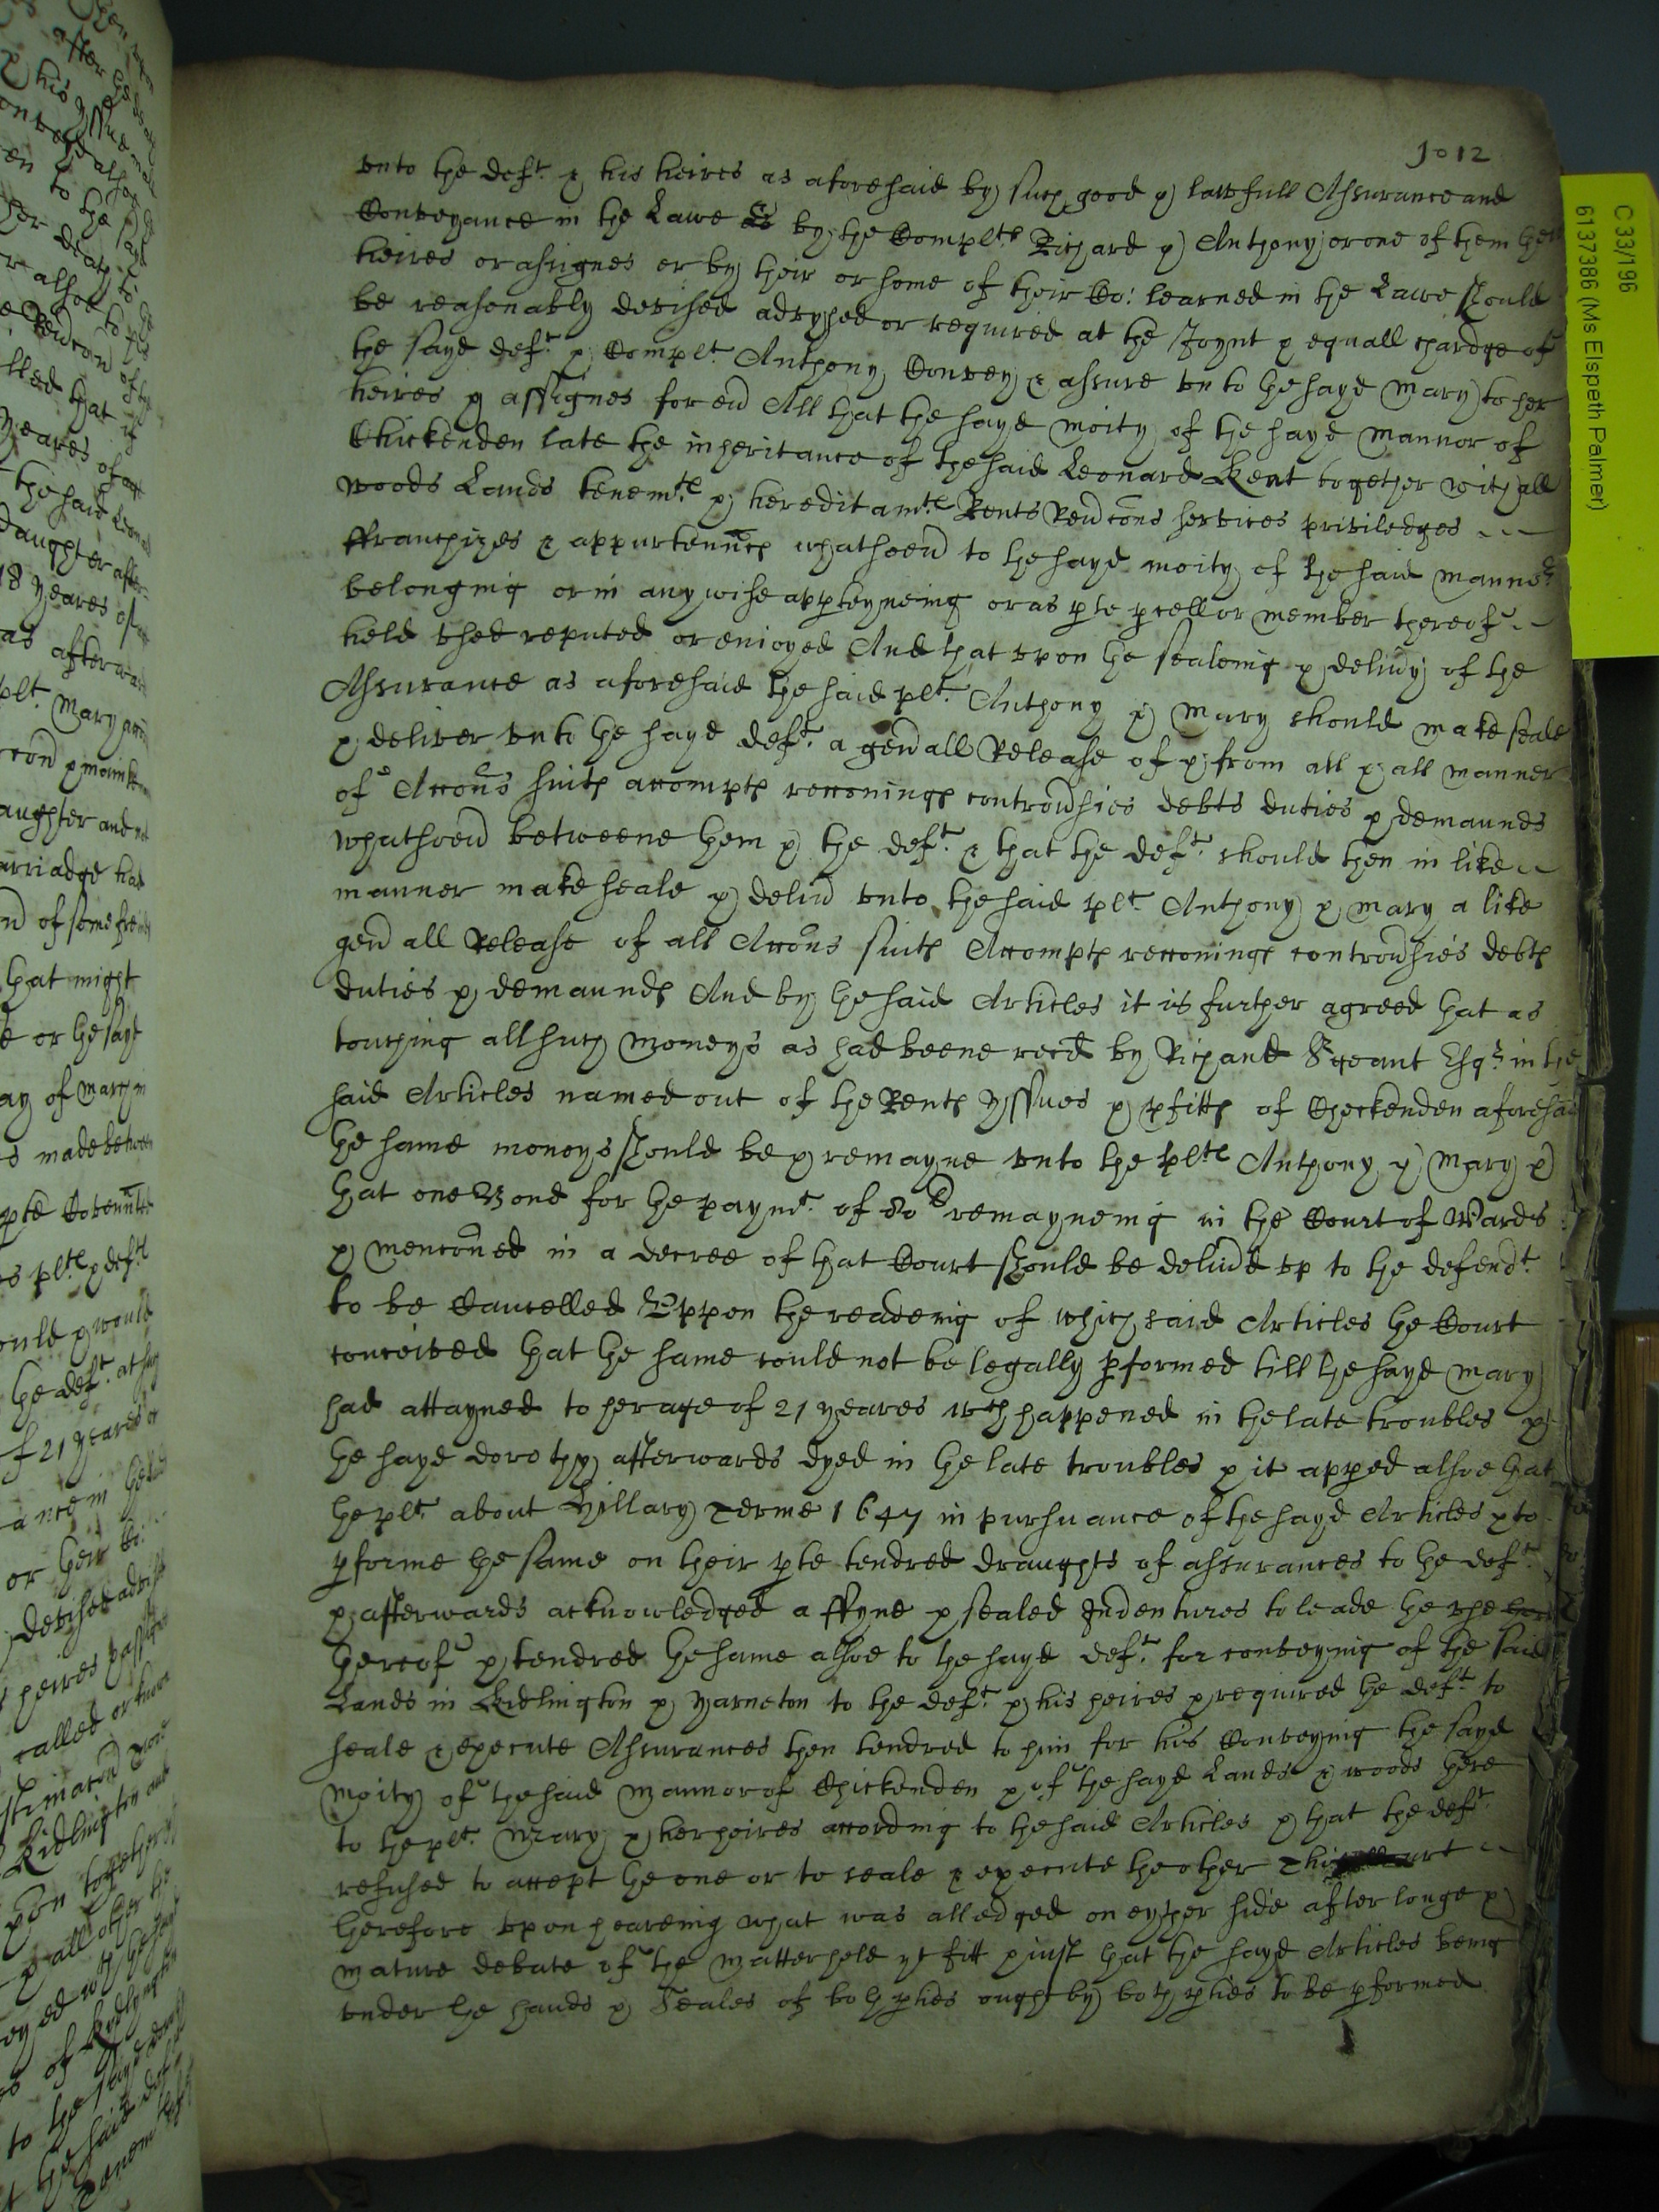 1012
vnto the deft. & his heires as aforesaid by such good & lawfull Assurance and
Conveyance in the Lawe as by the Complts Richard & Anthony or one of them their
heires or assignes or by their or some of their Co: learned in the Lawe should
be reasonably devised advysed or required at the Joynt & equall chardge of
the sayd deft. & Complt Anthony Convey & assure vnto the sayd Mary to her
heires & assignes for eu All that the sayd moity of the sayd mannor of
Chickenden late the inheritance of the said Leonard Kent together with all
woods Lands tenemts & hereditamts Rents Reucons services priviledges
ffranchizes & appurtennces whatsoeu to the sayd moity of the said mannor
belonging or in any wise apperteyneing or as pte pcell or member thereof
held vsed reputed or enioyed And that vpon the sealeing & deliuy of the
Assurance as aforesaid the said plt. Anthony & Mary should make seale
& deliver vnto the sayd deft. a genall Release of & from all & all manner
of Accons suits accompts reckonings controusies debts duties & demaunds
whatsoeu betweene them & the deft. & that the deft. should then in like
manner make seale & deliu vnto the said plt. Anthony & Mary a like
genall Release of all Accons suits Accompts reckonings controusies debts
duties & demaunds And by the said Articles it is further agreed that as
touching all such moneys as had beene recd by Richard Sgeant Esqr in the
said Articles named out of the Rents yssues & pfitts of Checkenden aforesaid
the same moneys should be & remayne vnto the plts Anthony & Mary &
that one Bond for the paymt. of 80l remayneing in the Court of Wards
& menconed in a decree of that Court should be deliued vp to the defendt.
to be Cancelled Vppon the readeing of which said Articles the Court
conceived that the same could not be legally pformed till the sayd Mary
had attayned to her age of 21 yeares wch happened in the late troubles &
the sayd Dorothy afterwards dyed in the late troubles & it appeed alsoe that
the plt. about Hillary Terme 1647 in pursuance of the sayd Articles & to
pforme the same on their pte tendred draughts of assurances to the deft.
& afterwards acknowledged a ffyne & sealed Indentures to leade the vse
thereof & tendred the same alsoe to the sayd deft. for conveying of the said
Lands in Kidlington & Yarneton to the deft. & his heires & required the deft. to
seale & execute Assurances then tendred to him for his Conveying the sayd
moity of the said mannor of Chickenden & of the sayd Lands & woods there
to the plt. Mary & her heires according to the said Articles & that the deft.
refused to accept the one or to seale & execute the other This Court
therefore vpon heareing what was alledged on eyther side after longe &
mature debate of the matter held yt fitt & iust that the sayd Articles being
vnder the hands & Seales of both pties ought by both pties to be pformed
C 33/196
6137386 (Ms Elspeth Palmer)